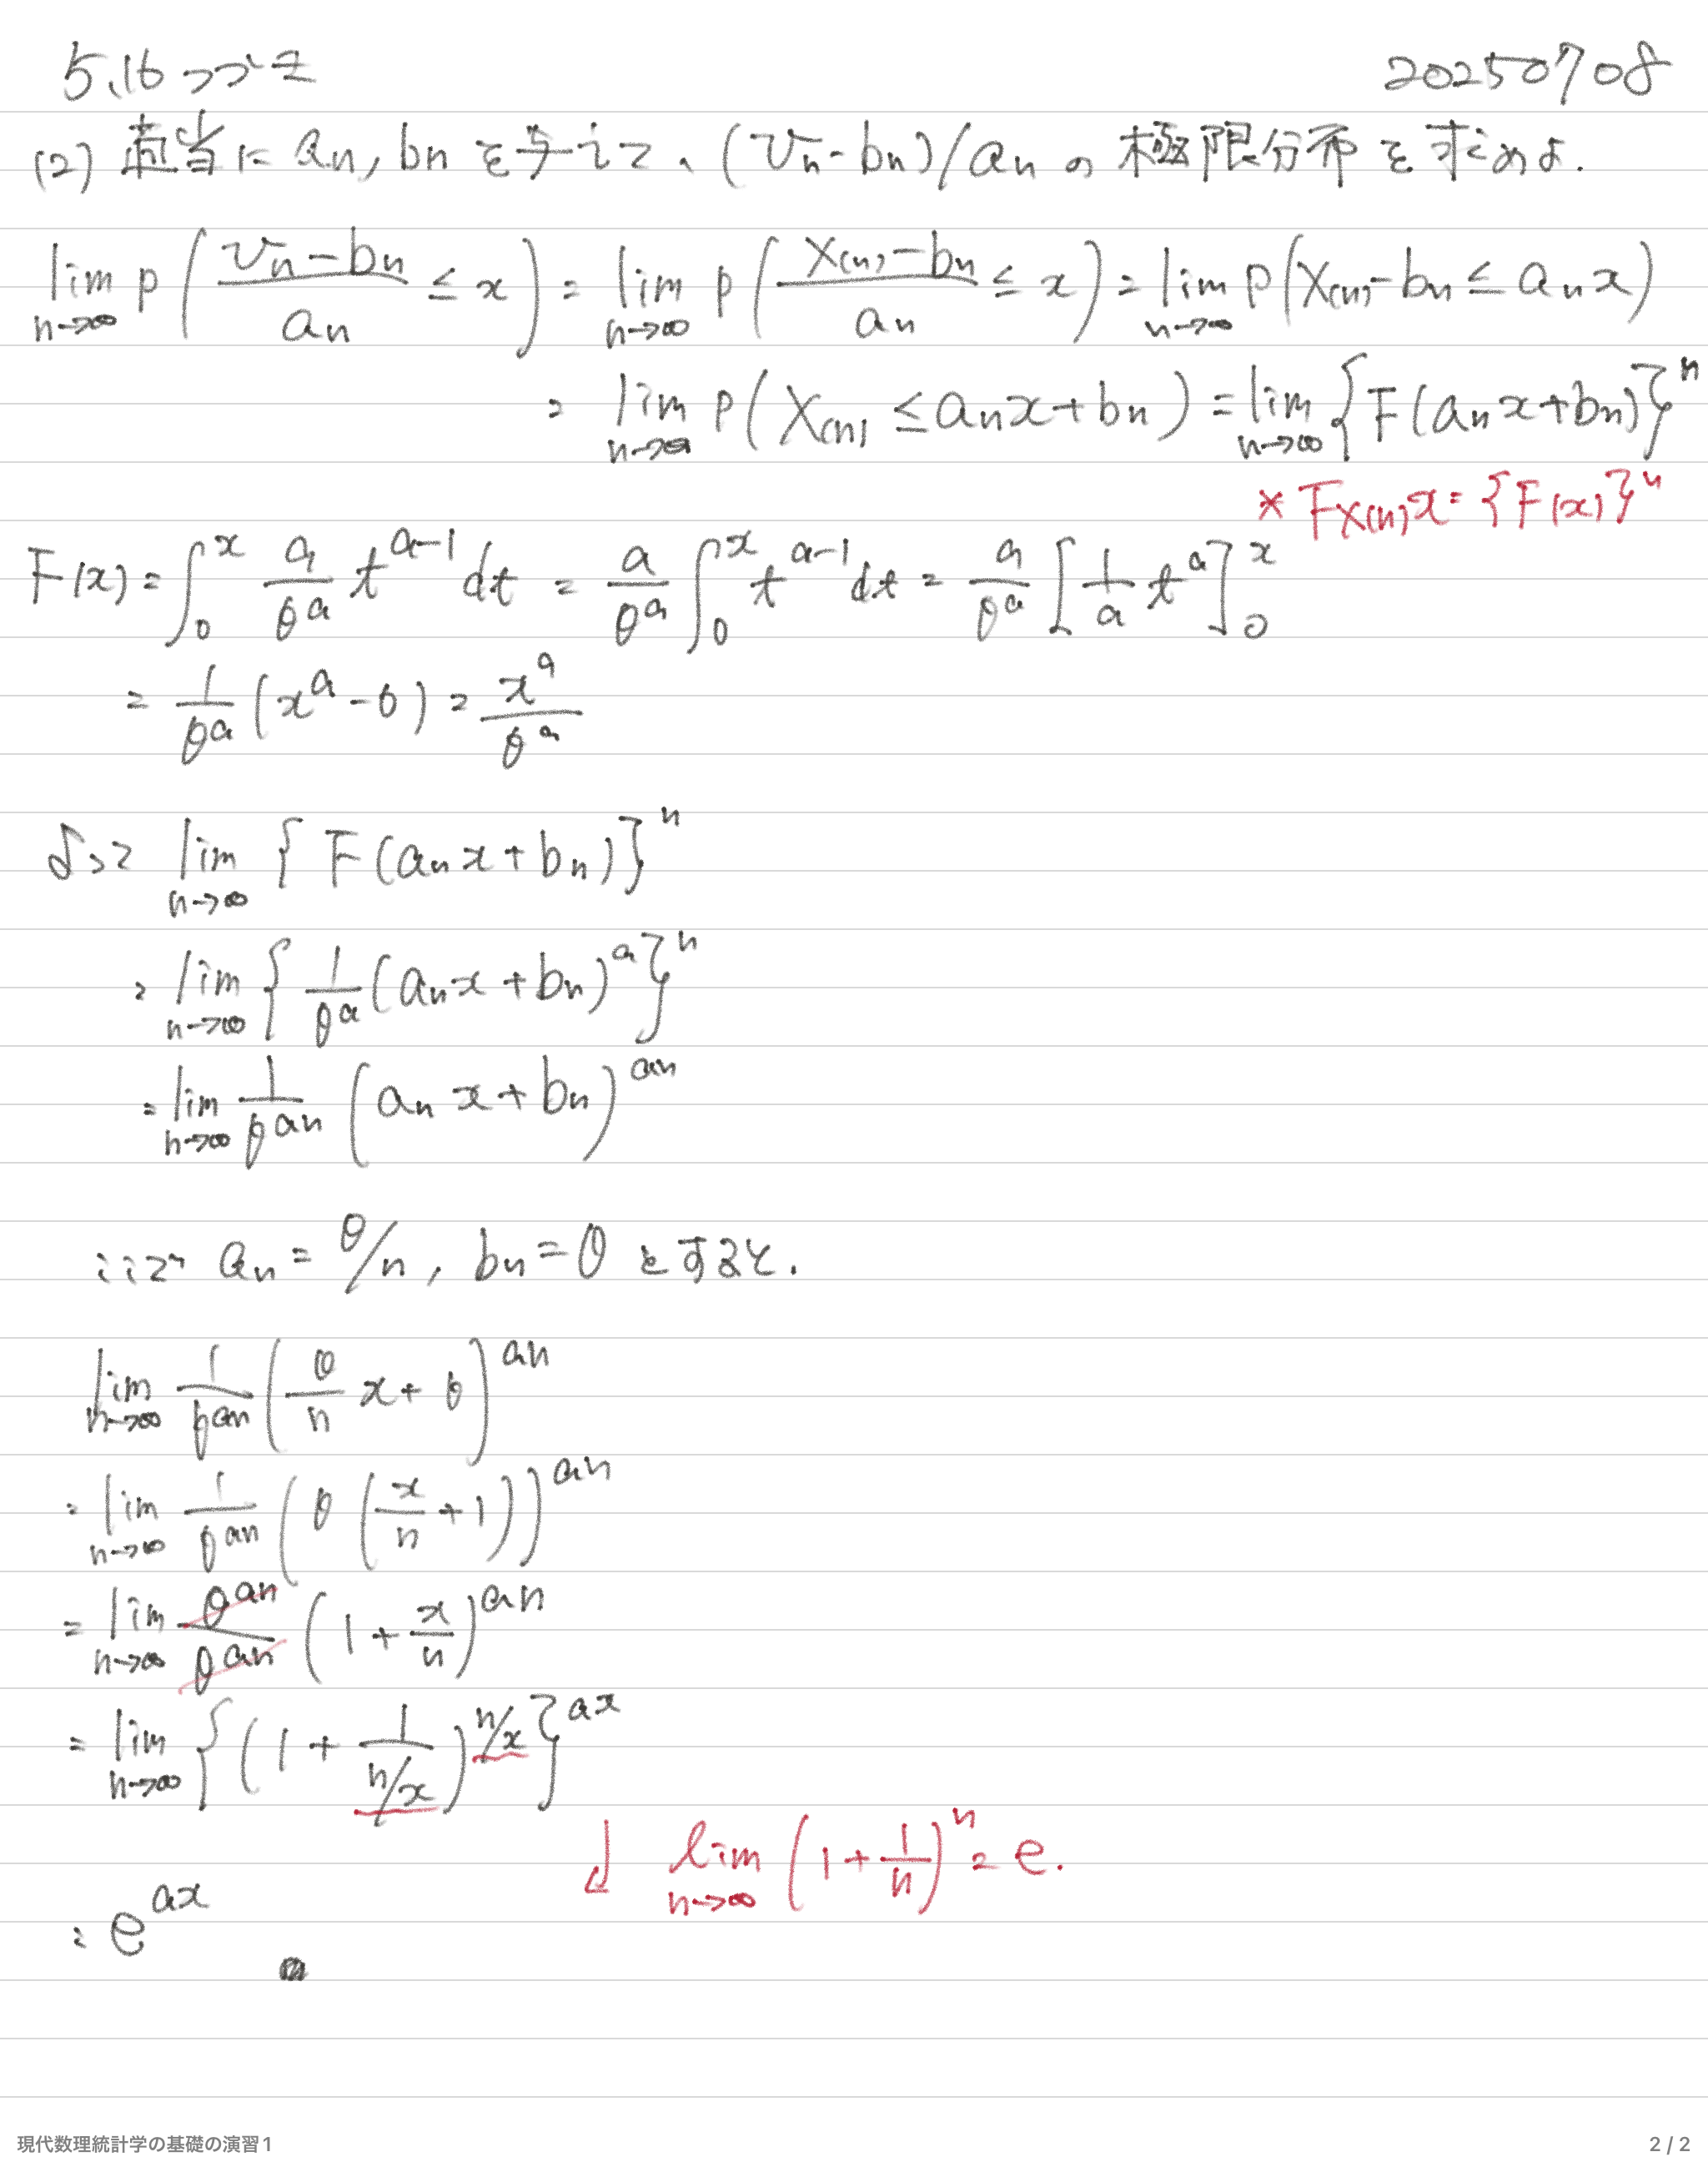 5.16 つづき 20250708
(2) 適当に an, bn を与えて、(Vn-bn)/an の極限分布を求めよ.
lim n→∞ P( (Vn-bn)/an ≤ x ) = lim n→∞ P( (X(n)-bn)/an ≤ x ) = lim n→∞ P(X(n)-bn ≤ an x)
= lim n→∞ P( X(n) ≤ an x + bn ) = lim n→∞ {F(an x+bn)}^n
* F_X(n) x = {F(x)}^n
F(x) = ∫_0^x a/θ^a t^(a-1) dt = a/θ^a ∫_0^x t^(a-1) dt = a/θ^a [1/a t^a]_0^x
= 1/θ^a (x^a - 0) = x^a/θ^a
よって lim n→∞ { F(an x + bn)}^n
= lim n→∞ { 1/θ^a (an x + bn)^a }^n
= lim n→∞ 1/θ^(an) (an x + bn)^(an)
ここで an = θ/n, bn = θ とすると.
lim n→∞ 1/θ^(an) (θ/n x + θ)^(an)
= lim n→∞ 1/θ^(an) (θ (x/n + 1))^(an)
= lim n→∞ θ^(an)/θ^(an) (1 + x/n)^(an)
= lim n→∞ { (1 + 1/(n/x))^(n/x) }^(ax)
↓ lim n→∞ (1 + 1/n)^n = e.
= e^(ax)
現代数理統計学の基礎の演習1 2 / 2